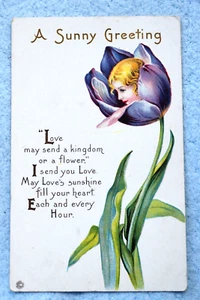 A Sunny Greeting
"Love
may send a kingdom
or a flower,"
I send you Love.
May Love's sunshine
fill your heart
Each and every
Hour.